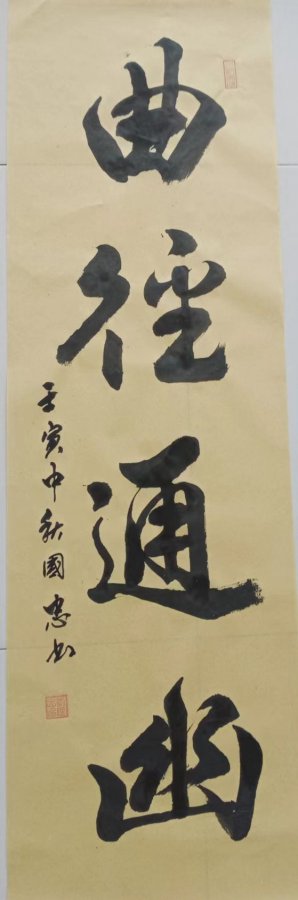 曲徑通幽
壬寅中秋國忠书